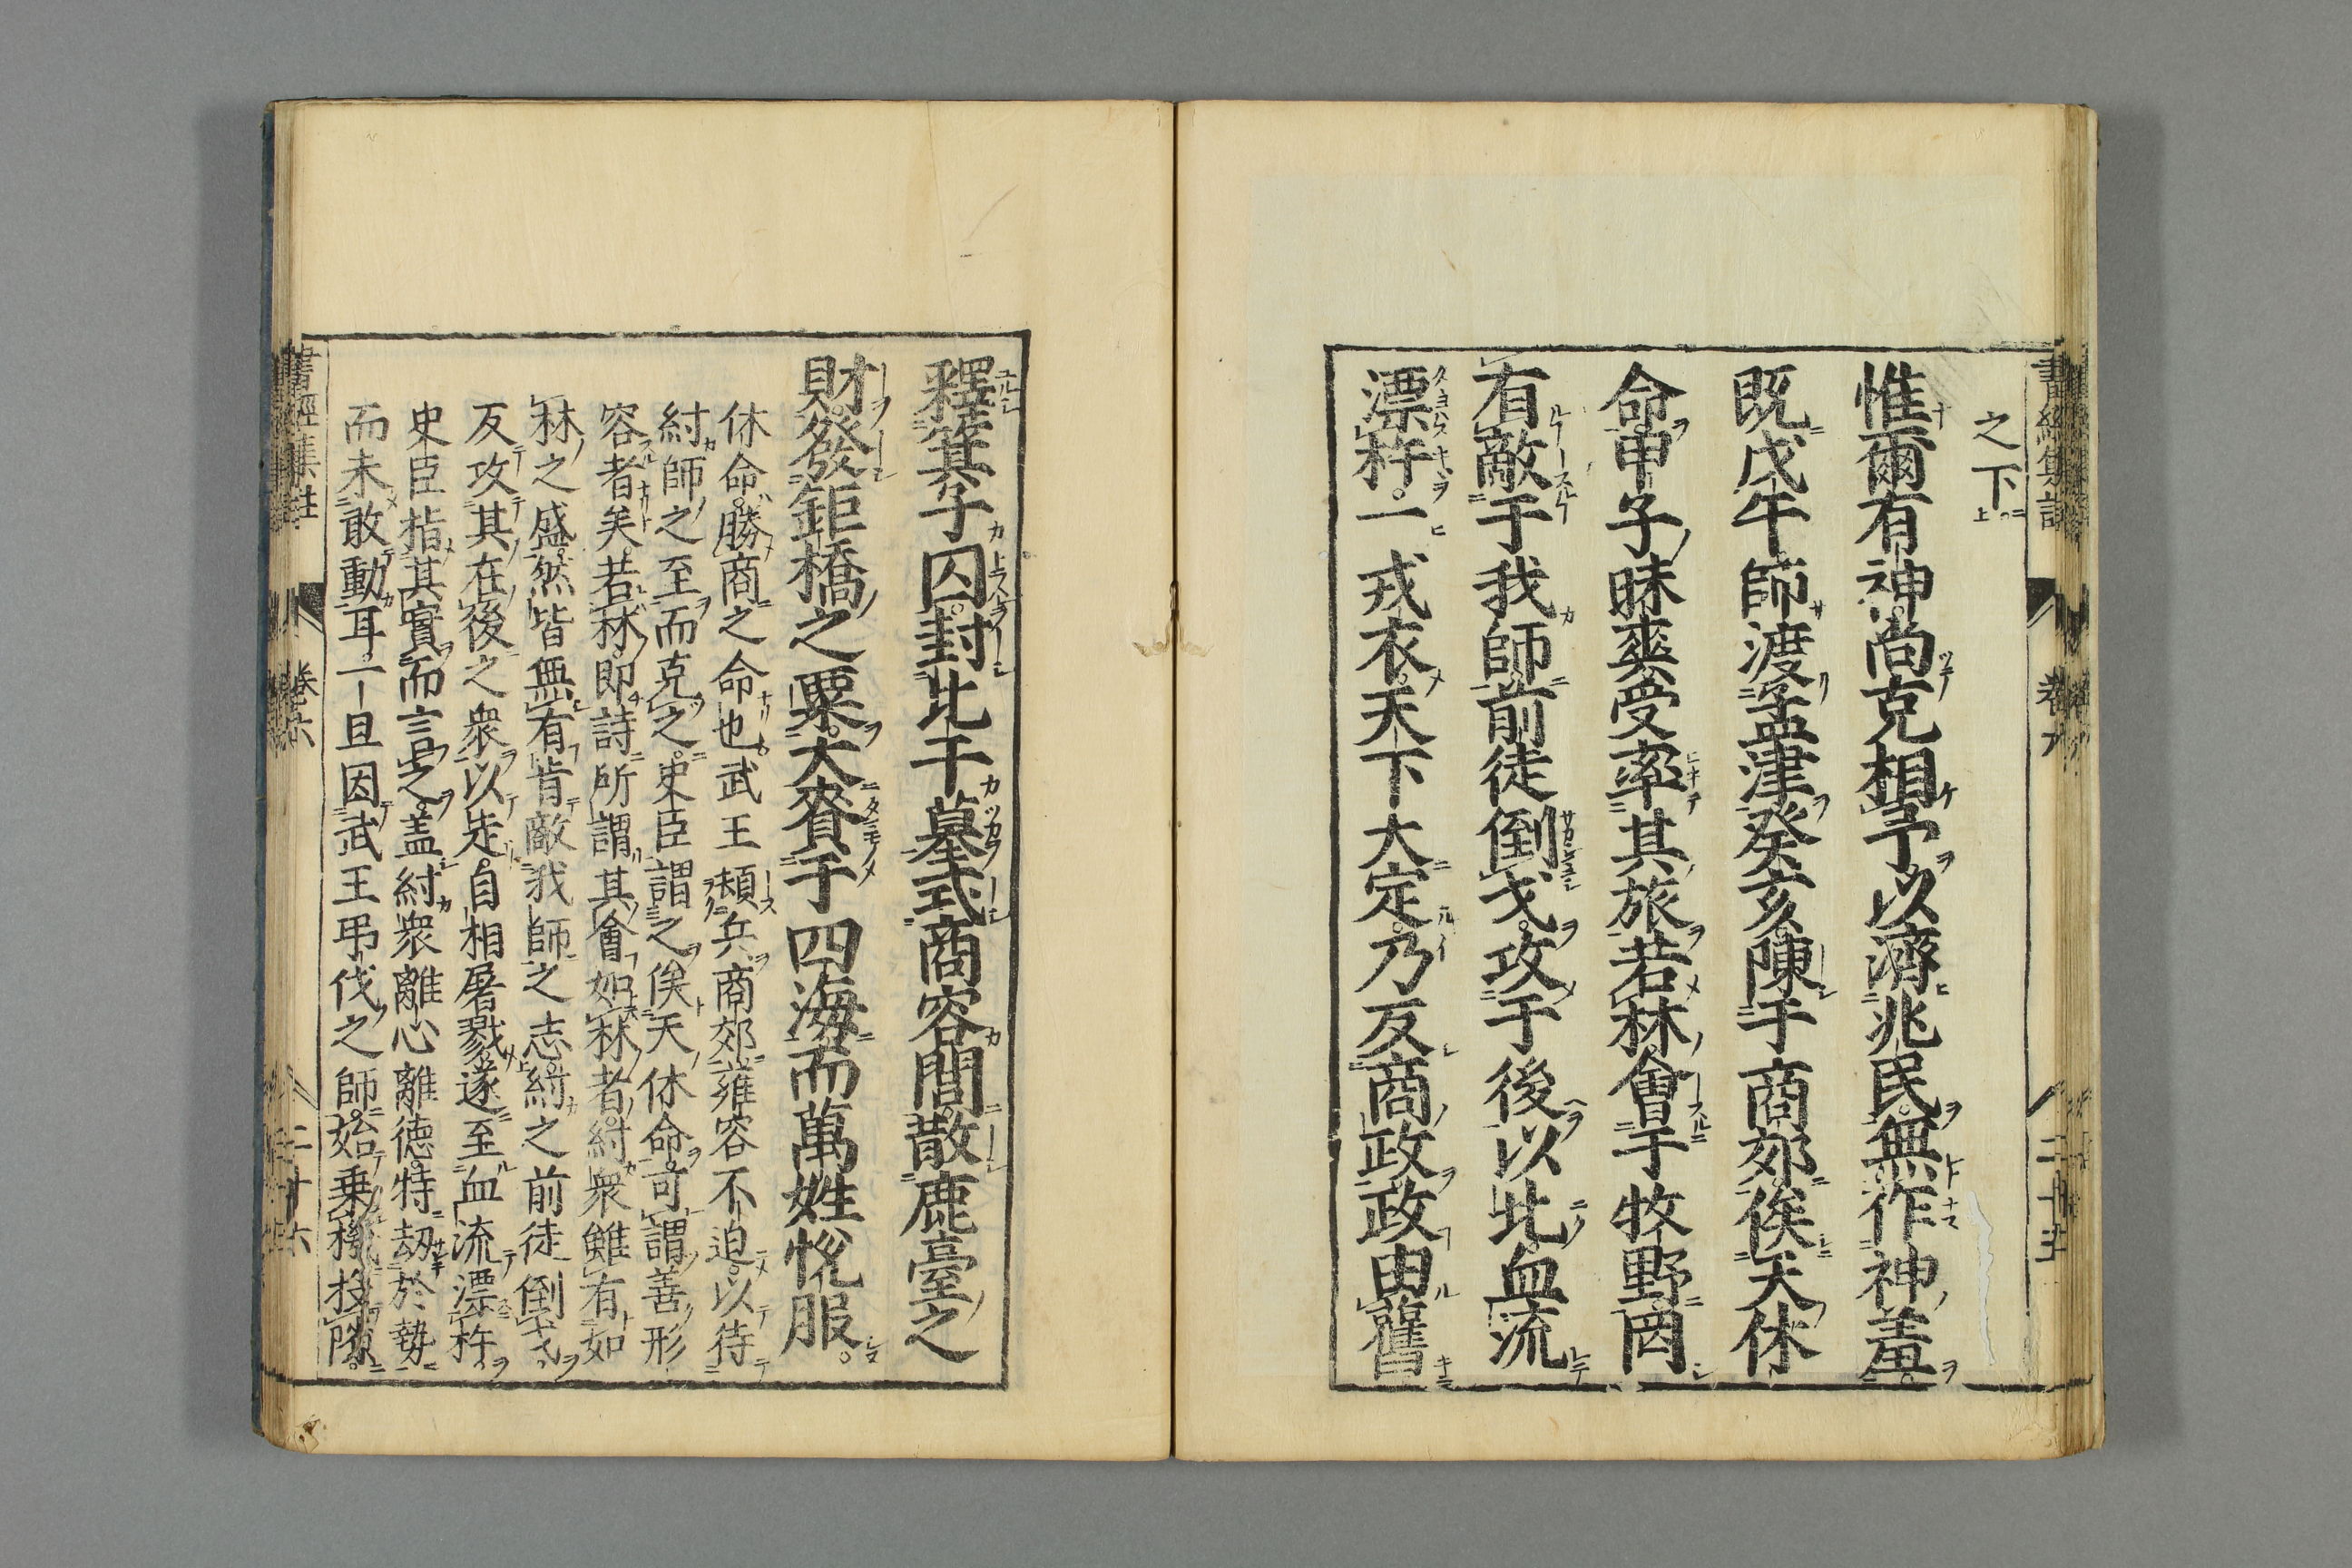 之下
惟爾有神。尚克相予。以濟兆民。無作神羞。
既戊午。師渡孟津。癸亥。陳于商郊。俟天休
命。甲子昧爽。受率其旅。若林。會于牧野。罔
有敵于我師。前徒倒戈。攻于後。以北。血流
漂杵。一戎衣。天下大定。乃反商政。政由舊。
釋箕子囚。封比干墓。式商容閭。散鹿臺之
財。發鉅橋之粟。大賚于四海。而萬姓悅服。
休命。勝商之命也。武王頓兵商郊。雍容不迫。以待
紂師之至而克之。史臣謂之俟天休命。可謂善形
容者矣。若林。即詩所謂其會如林者。紂衆雖有如
林之盛。然皆無有肯敵我師之志。紂之前徒倒戈。
反攻其在後之衆以走。自相屠戮。遂至血流漂杵。
史臣指其實而言之。蓋紂衆離心離德。特劫於勢
而未敢動耳。一旦因武王弔伐之師。始乘機投隙。
書經集註
卷六
二十六